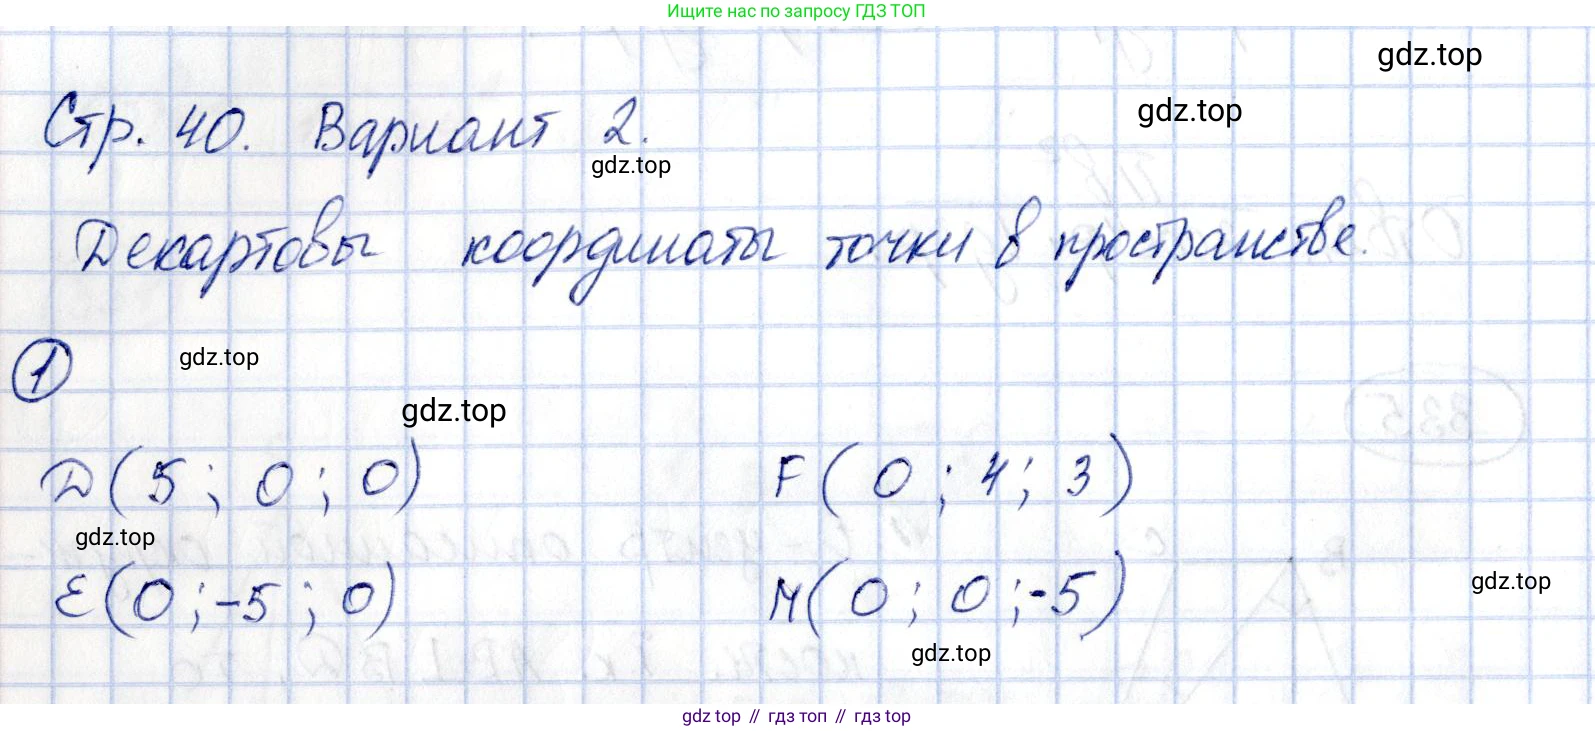 Ищите нас по запросу ГДЗ ТОП
gdz.top
gdz.top
Стр. 40. Вариант 2.
gdz.top
Декартовы координаты точки в пространстве.
1
gdz.top
gdz.top
D(5; 0; 0) F(0; 4; 3)
gdz.top
E(0; -5; 0) M(0; 0; -5)
gdz.top
gdz.top
gdz top // гдз топ // гдз top